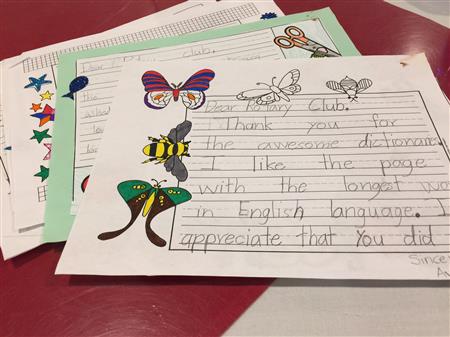 Dear Rotary Club.
Thank you for
the awesome dictionaries
I like the page
with the longest wo
in English language. I
appreciate that you did
Sincer
Dear Rotary Club.
the